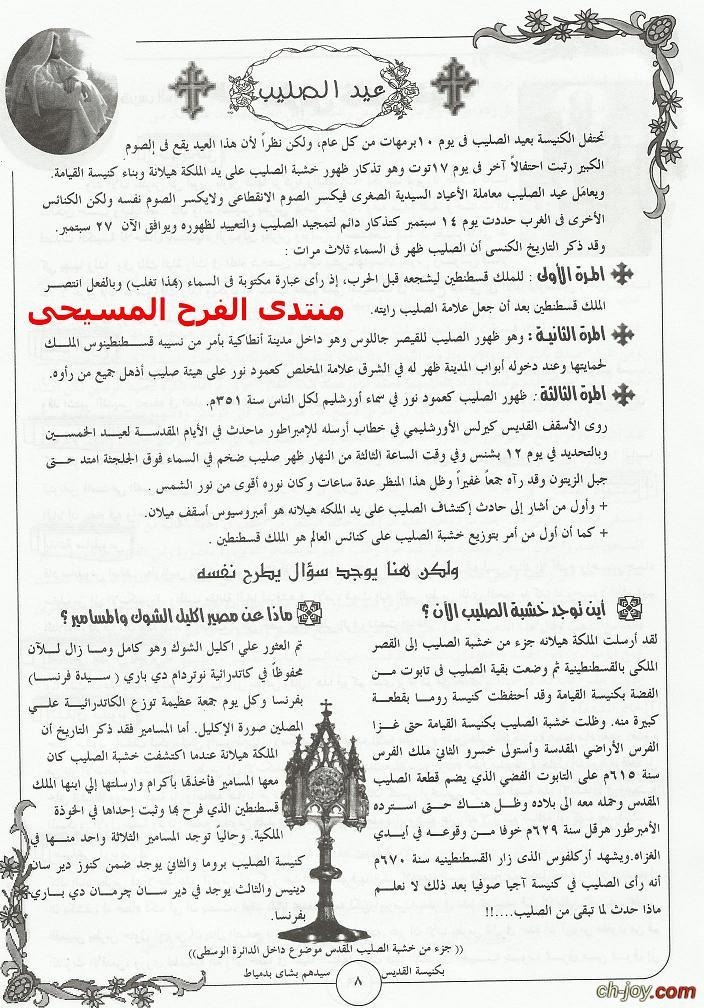 عيد الصليب
تحتفل الكنيسة بعيد الصليب فى يوم ١٠برمهات من كل عام، ولكن نظراً لأن هذا العيد يقع فى الصوم
الكبير رتبت احتفالاً آخر فى يوم ١٧توت وهو تذكار ظهور خشبة الصليب على يد الملكة هيلانة وبناء كنيسة القيامة.
ويعامَل عيد الصليب معاملة الأعياد السيدية الصغرى فيكسر الصوم الانقطاعى ولايكسر الصوم نفسه ولكن الكنائس
الأخرى فى الغرب حددت يوم ١٤ سبتمبر كتذكار دائم لتمجيد الصليب والتعييد لظهوره ويوافق الآن ٢٧ سبتمبر.
وقد ذكر التاريخ الكنسى أن الصليب ظهر فى السماء ثلاث مرات :
المرة الأولى : للملك قسطنطين ليشجعه قبل الحرب، إذ رأى عبارة مكتوبة فى السماء (بهذا تغلب) وبالفعل انتصر
الملك قسطنطين بعد أن جعل علامة الصليب رايته.
منتدى الفرح المسيحى
المرة الثانية: وهو ظهور الصليب للقيصر جاللوس وهو داخل مدينة أنطاكية بأمر من نسيبه قسطنطينوس الملك
لحمايتها وعند دخوله أبواب المدينة ظهر له فى الشرق علامة المخلص كعمود نور على هيئة صليب أذهل جميع من رأوه.
المرة الثالثة : ظهور الصليب كعمود نور في سماء أورشليم لكل الناس سنة ٣٥١م.
روى الأسقف القديس كيرلس الأورشليمي في خطاب أرسله للإمبراطور ماحدث في الأيام المقدسة لعيد الخمسين
وبالتحديد في يوم ١٢ بشنس وفي وقت الساعة الثالثة من النهار ظهر صليب ضخم في السماء فوق الجلجثة امتد حتى
جبل الزيتون وقد رآه جمعاً غفيراً وظل هذا المنظر عدة ساعات وكان نوره أقوى من نور الشمس .
+ وأول من أشار إلى حادث إكتشاف الصليب على يد الملكه هيلانه هو أمبروسيوس أسقف ميلان.
+ كما أن أول من أمر بتوزيع خشبة الصليب على كنائس العالم هو الملك قسطنطين .
ولكن هنا يوجد سؤال يطرح نفسه
أين توجد خشبة الصليب الآن ؟
لقد أرسلت الملكة هيلانه جزء من خشبة الصليب إلى القصر
الملكى بالقسطنطينية ثم وضعت بقية الصليب فى تابوت من
الفضة بكنيسة القيامة وقد أحتفظت كنيسة روما بقطعة
كبيرة منه. وظلت خشبة الصليب بكنيسة القيامة حتى غزا
الفرس الأراضي المقدسة وأستولى خسرو الثاني ملك الفرس
سنة ٦١٥م على التابوت الفضي الذي يضم قطعة الصليب
المقدس وحمله معه الى بلاده وظل هناك حتى استرده
الأمبرطور هرقل سنة ٦٢٩م خوفا من وقوعه في أيدي
الغزاه.ويشهد أركلفوس الذى زار القسطنطينيه سنة ٦٧٠م
أنه رأى الصليب في كنيسة آجيا صوفيا بعد ذلك لا نعلم
ماذا حدث لما تبقى من الصليب....!!!
ماذا عن مصير اكليل الشوك والمسامير ؟
تم العثور علي اكليل الشوك وهو كامل وما زال للآن
محفوظاً في كاتدرائية نوتردام دي باري ( سيدة فرنسا )
بفرنسا وكل يوم جمعة عظيمة توزع الكاتدرائية علي
المصلين صورة الإكليل. أما المسامير فقد ذكر التاريخ أن
الملكة هيلانة عندما اكتشفت خشبة الصليب كان
معها المسامير فأخذتها بأكرام وارسلتها إلي ابنها الملك
قسطنطين الذي فرح بها وثبت إحداها في الخوذة
الملكية. وحالياً توجد المسامير الثلاثة واحد منها في
كنيسة الصليب بروما والثاني يوجد ضمن كنوز دير سان
دينيس والثالث يوجد في دير سان چرمان دي باري،
بفرنسا.
(( جزء من خشبة الصليب المقدس موضوع داخل الدائرة الوسطى))
بكنيسة القديس سيدهم بشاى بدمياط
٨
ch-joy.com